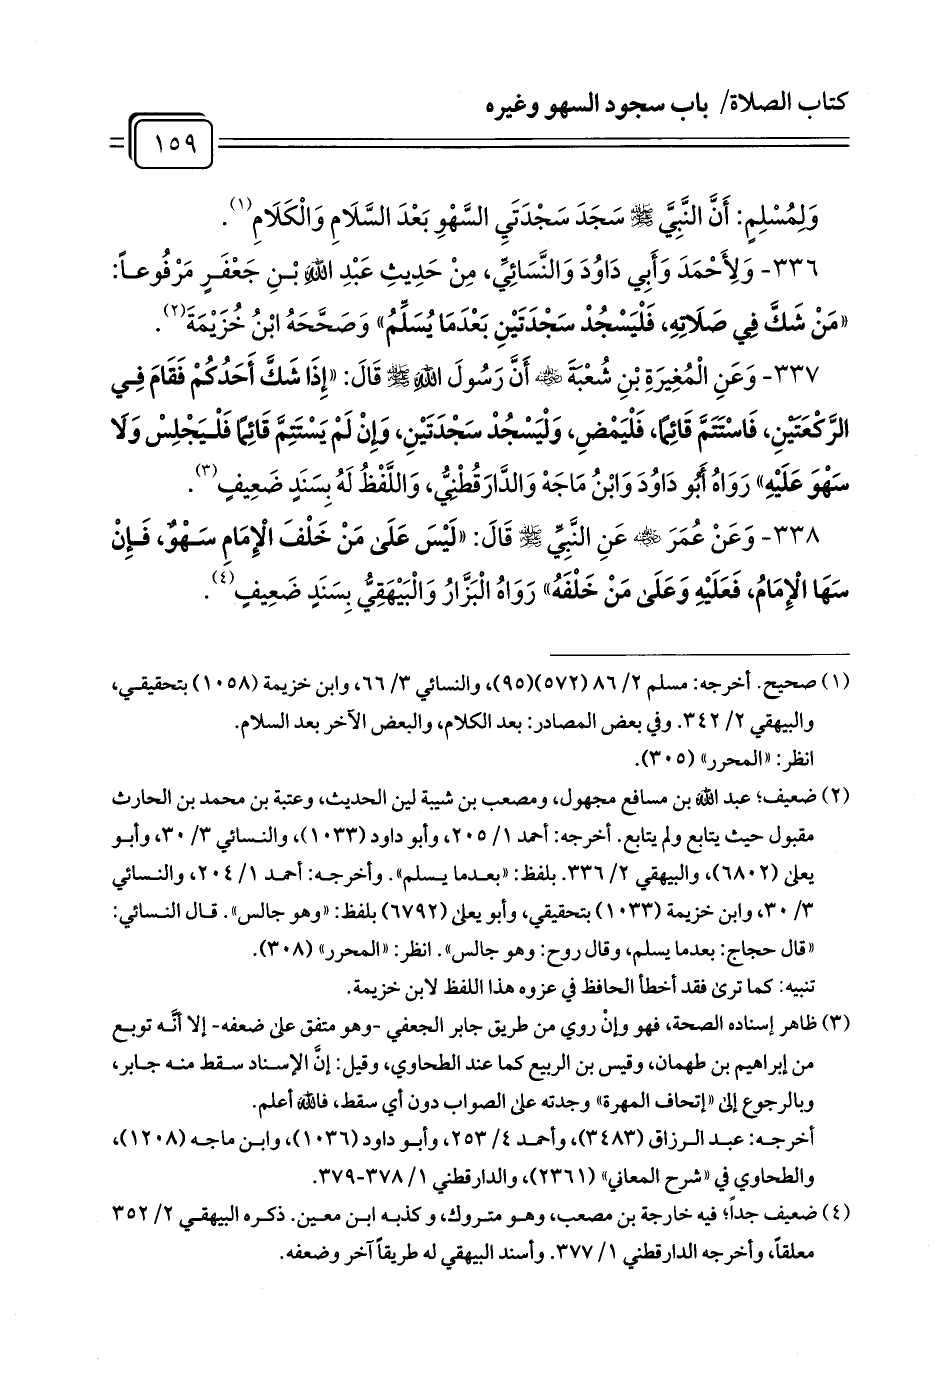 كتاب الصلاة/ باب سجود السهو وغيره
١٥٩
وَلِمُسْلِمٍ: أَنَّ النَّبِيَّ ﷺ سَجَدَ سَجْدَتَيِ السَّهْوِ بَعْدَ السَّلَامِ وَالْكَلَامِ(١).
٣٣٦- وَلِأَحْمَدَ وَأَبِي دَاوُدَ وَالنَّسَائِيِّ، مِنْ حَدِيثِ عَبْدِ اللهِ بْنِ جَعْفَرٍ مَرْفُوعاً:
«مَنْ شَكَّ فِي صَلَاتِهِ، فَلْيَسْجُدْ سَجْدَتَيْنِ بَعْدَمَا يُسَلِّمُ» وَصَحَّحَهُ ابْنُ خُزَيْمَةَ(٢).
٣٣٧- وَعَنِ الْمُغِيرَةِ بْنِ شُعْبَةَ ﷺ أَنَّ رَسُولَ اللهِ ﷺ قَالَ: «إِذَا شَكَّ أَحَدُكُمْ فَقَامَ فِي
الرَّكْعَتَيْنِ، فَاسْتَتَمَّ قَائِمًا، فَلْيَمْضِ، وَلْيَسْجُدْ سَجْدَتَيْنِ، وَإِنْ لَمْ يَسْتَتِمَّ قَائِمًا فَلْيَجْلِسْ وَلَا
سَهْوَ عَلَيْهِ» رَوَاهُ أَبُو دَاوُدَ وَابْنُ مَاجَهْ وَالدَّارَقُطْنِيُّ، وَاللَّفْظُ لَهُ بِسَنَدٍ ضَعِيفٍ(٣).
٣٣٨- وَعَنْ عُمَرَ ﵁ عَنِ النَّبِيِّ ﷺ قَالَ: «لَيْسَ عَلَى مَنْ خَلْفَ الْإِمَامِ سَهْوٌ، فَإِنْ
سَهَا الْإِمَامُ، فَعَلَيْهِ وَعَلَى مَنْ خَلْفَهُ» رَوَاهُ الْبَزَّارُ وَالْبَيْهَقِيُّ بِسَنَدٍ ضَعِيفٍ(٤).
(١) صحيح. أخرجه: مسلم ٢/ ٨٦ (٥٧٢)(٩٥)، والنسائي ٣/ ٦٦، وابن خزيمة (١٠٥٨) بتحقيقي،
والبيهقي ٢/ ٣٤٢. وفي بعض المصادر: بعد الكلام، والبعض الآخر بعد السلام.
انظر: «المحرر» (٣٠٥).
(٢) ضعيف؛ عبد الله بن مسافع مجهول، ومصعب بن شيبة لين الحديث، وعتبة بن محمد بن الحارث
مقبول حيث يتابع ولم يتابع. أخرجه: أحمد ١/ ٢٠٥، وأبو داود (١٠٣٣)، والنسائي ٣/ ٣٠، وأبو
يعلى (٦٨٠٢)، والبيهقي ٢/ ٣٣٦. بلفظ: «بعدما يسلم». وأخرجه: أحمد ١/ ٢٠٤، والنسائي
٣/ ٣٠، وابن خزيمة (١٠٣٣) بتحقيقي، وأبو يعلى (٦٧٩٢) بلفظ: «وهو جالس». قال النسائي:
«قال حجاج: بعدما يسلم، وقال روح: وهو جالس». انظر: «المحرر» (٣٠٨).
تنبيه: كما ترى فقد أخطأ الحافظ في عزوه هذا اللفظ لابن خزيمة.
(٣) ظاهر إسناده الصحة، فهو وإنْ روي من طريق جابر الجعفي -وهو متفق على ضعفه- إلا أنَّه توبع
من إبراهيم بن طهمان، وقيس بن الربيع كما عند الطحاوي، وقيل: إنَّ الإسناد سقط منه جابر،
وبالرجوع إلى «إتحاف المهرة» وجدته على الصواب دون أي سقط، فالله أعلم.
أخرجه: عبد الرزاق (٣٤٨٣)، وأحمد ٤/ ٢٥٣، وأبو داود (١٠٣٦)، وابن ماجه (١٢٠٨)،
والطحاوي في «شرح المعاني» (٢٣٦١)، والدارقطني ١/ ٣٧٨-٣٧٩.
(٤) ضعيف جداً؛ فيه خارجة بن مصعب، وهو متروك، وكذبه ابن معين. ذكره البيهقي ٢/ ٣٥٢
معلقاً، وأخرجه الدارقطني ١/ ٣٧٧. وأسند البيهقي له طريقاً آخر وضعفه.